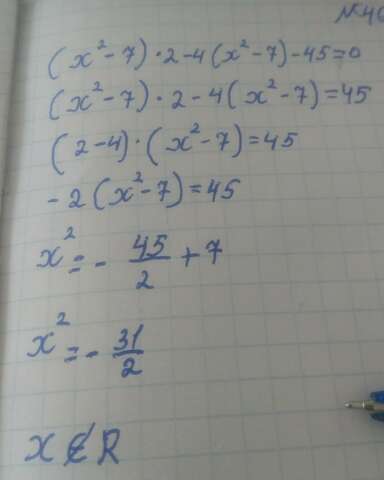 №46
(x² - 7) · 2 - 4(x² - 7) - 45 = 0
(x² - 7) · 2 - 4(x² - 7) = 45
(2 - 4) · (x² - 7) = 45
- 2(x² - 7) = 45
x² = - 45/2 + 7
x² = - 31/2
x ∉ R